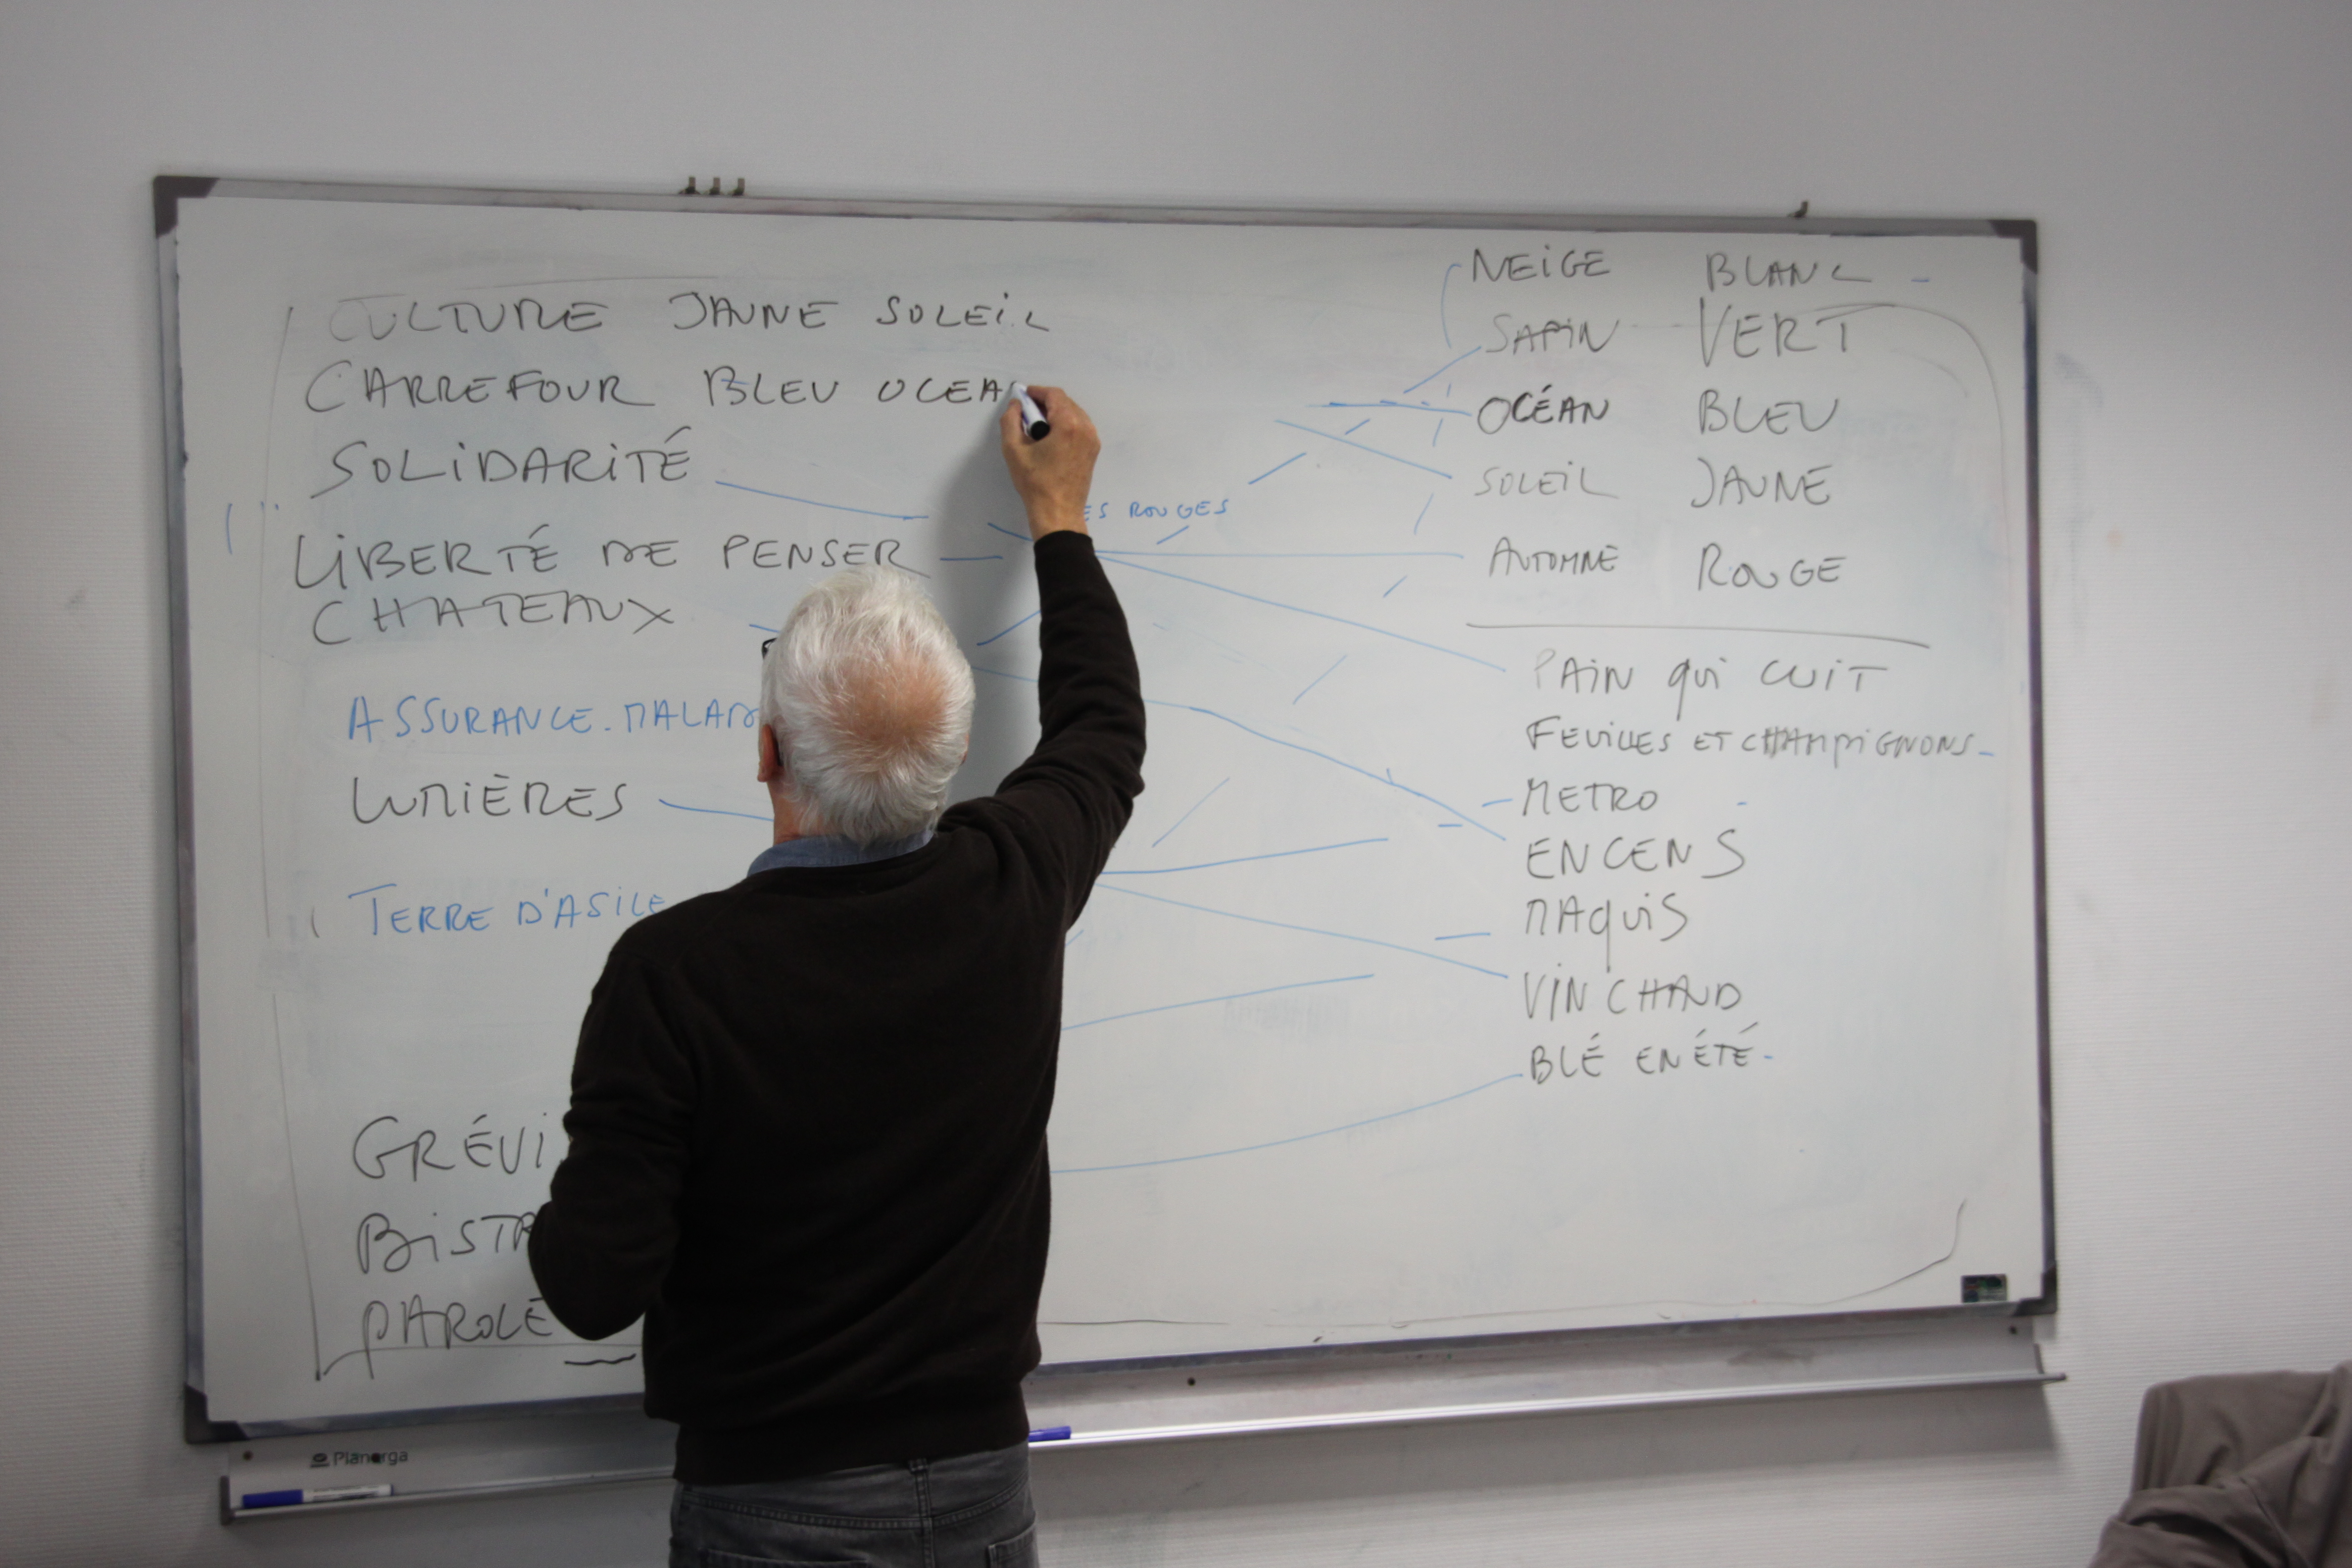 CULTURE JAUNE SOLEIL
CARREFOUR BLEU OCEA
SOLIDARITÉ
ES ROUGES
LIBERTÉ DE PENSER
CHATEAUX
ASSURANCE-MALAD
LUMIÈRES
TERRE D'ASILE
GRÉVI
BISTR
PAROLE
NEIGE BLANC
SAPIN VERT
OCÉAN BLEU
SOLEIL JAUNE
AUTOMNE ROUGE
PAIN qui CUIT
FEUILLES ET CHAMPIGNONS
METRO
ENCENS
MAQUIS
VIN CHAUD
BLÉ EN ÉTÉ
Planorga